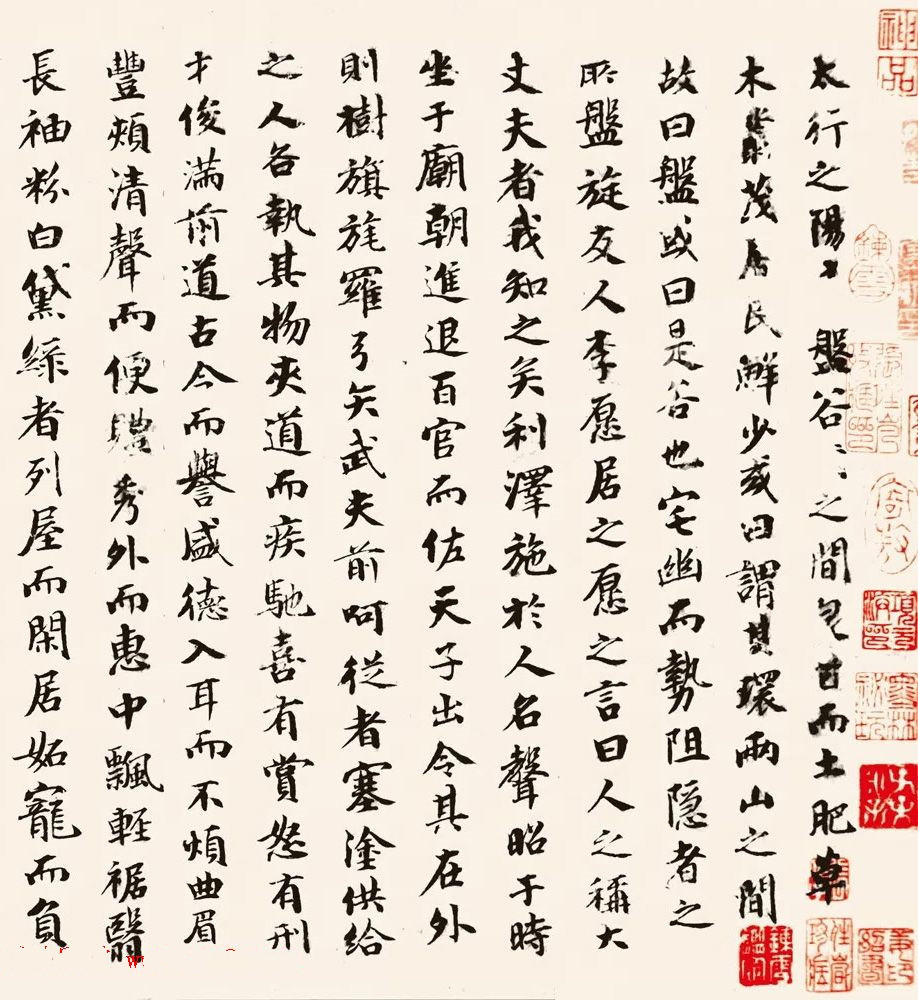 神品
太行之陽盤谷〻〻之間泉甘而土肥草
木藂茂居民鮮少或曰謂其環兩山之間
故曰盤或曰是谷也宅幽而勢阻隱者之
所盤旋友人李愿居之愿之言曰人之稱大
丈夫者我知之矣利澤施於人名聲昭于時
坐于廟朝進退百官而佐天子出令其在外
則樹旗旄羅弓矢武夫前呵從者塞塗供給
之人各執其物夾道而疾馳喜有賞怒有刑
才俊滿前道古今而譽盛德入耳而不煩曲眉
豐頰清聲而便體秀外而惠中飄輕裾翳
長袖粉白黛綠者列屋而閑居妬寵而負